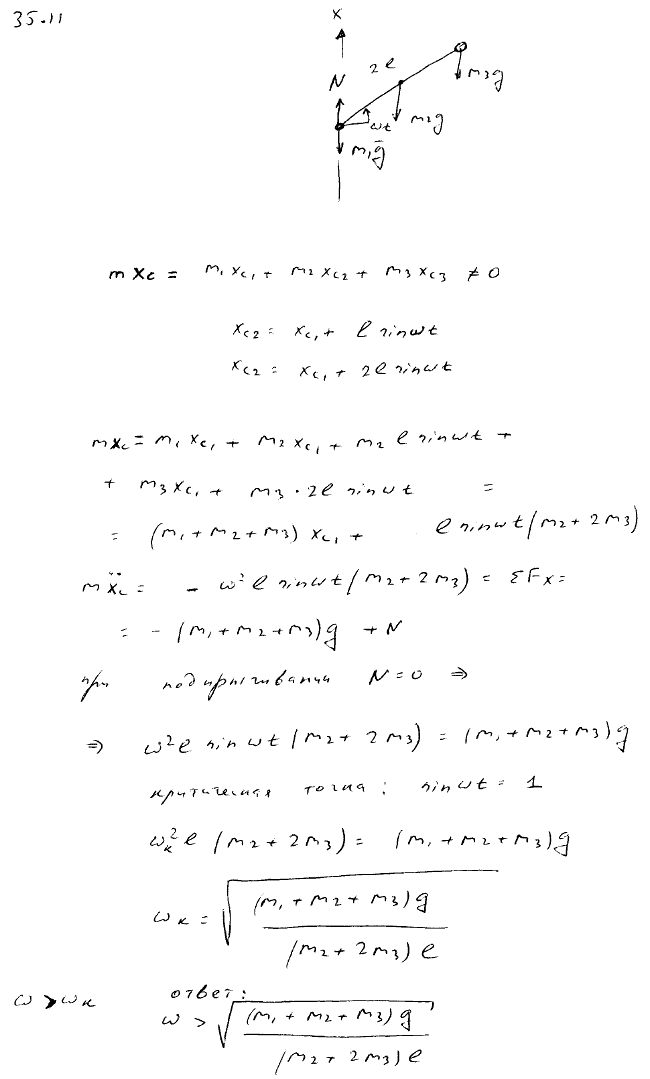 35.11
x
N
2l
m₃g
m₂g
ωt
m₁g̅
m x_c = m₁ x_c₁ + m₂ x_c₂ + m₃ x_c₃ ≠ 0
x_c₂ = x_c₁ + l sinωt
x_c₂ = x_c₁ + 2l sinωt
mx_c = m₁ x_c₁ + m₂ x_c₁ + m₂ l sinωt +
+ m₃ x_c₁ + m₃ · 2l sinωt =
= (m₁ + m₂ + m₃) x_c₁ + l sinωt (m₂ + 2m₃)
mẍ_c = - ω² l sinωt (m₂ + 2m₃) = ΣFx =
= - (m₁ + m₂ + m₃)g + N
при подпрыгивании N = 0 ⇒
⇒ ω² l sin ωt (m₂ + 2m₃) = (m₁ + m₂ + m₃)g
критическая точка: sinωt = 1
ω_к² l (m₂ + 2m₃) = (m₁ + m₂ + m₃)g
ω_к = √((m₁ + m₂ + m₃)g / (m₂ + 2m₃) l)
ω > ω_к ответ:
ω > √((m₁ + m₂ + m₃)g / (m₂ + 2m₃) l)